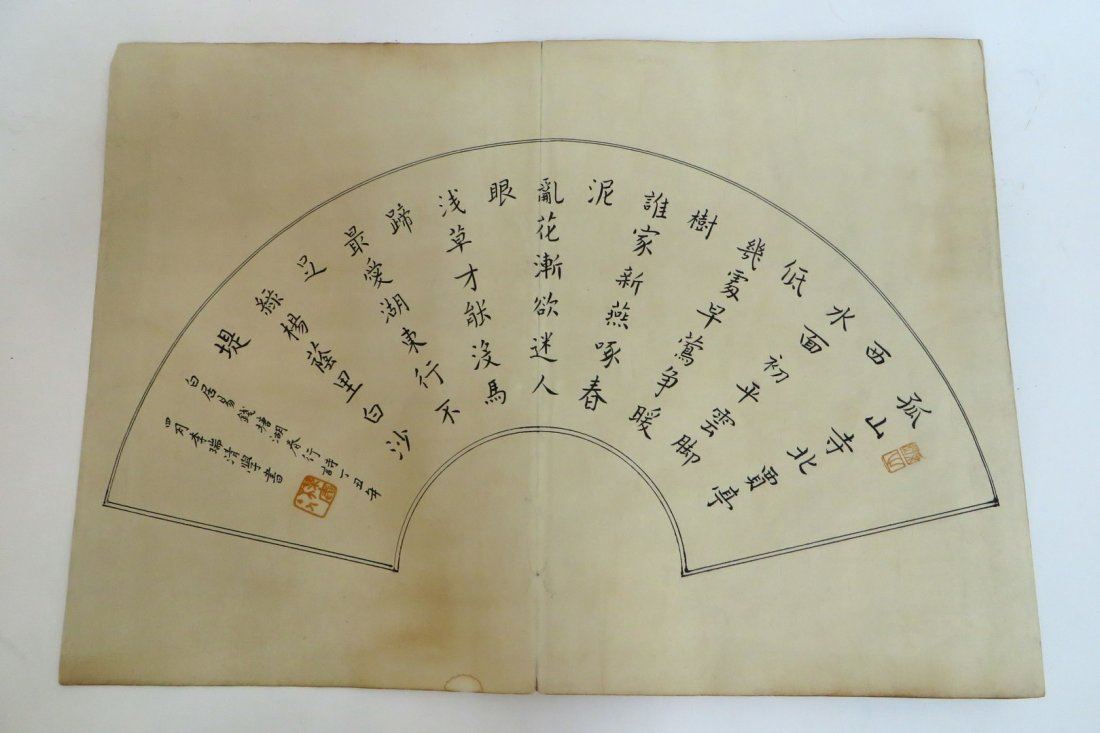 孤山寺北賈亭
西
水面初平雲脚
低
幾處早鶯争暖
樹
誰家新燕啄春
泥
亂花漸欲迷人
眼
浅草才能没馬
蹄
最愛湖東行不
足
綠楊蔭里白沙
堤
白居易錢塘湖春行詩丁丑年
四月李瑞清學書